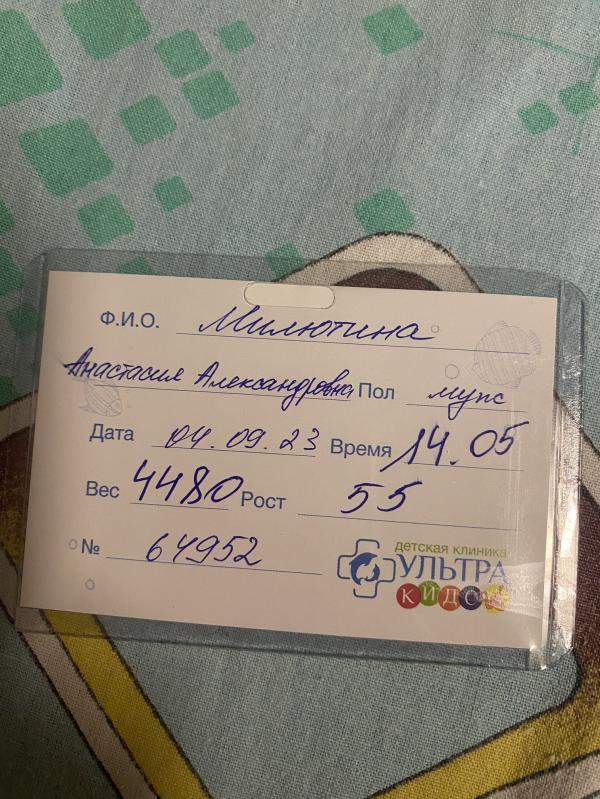 Ф.И.О. Милютина
Анастасия Александровна Пол муж
Дата 04.09.23 Время 14.05
Вес 4480 Рост 55
№ 64952
детская клиника
УЛЬТРА
КИДС